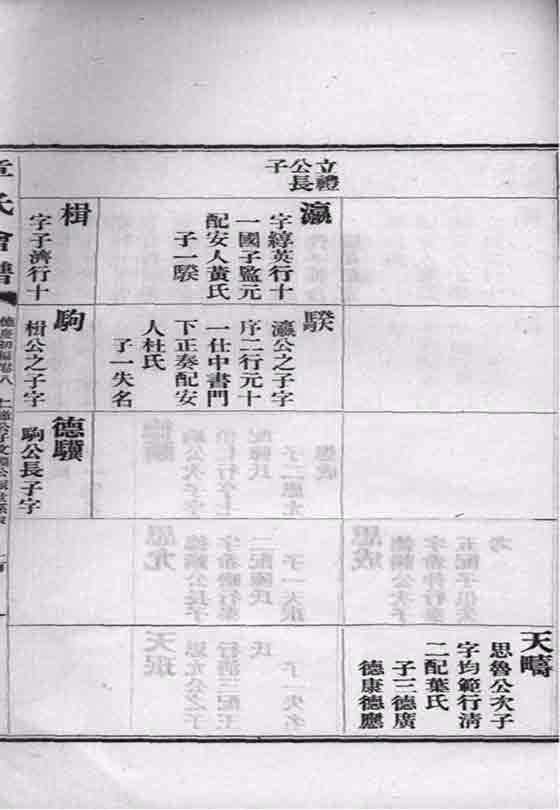 立禮
公長
子
瀛
字綧英行十
一國子監元
配安人黃氏
子一騤
楫
字子濟行十
騤
瀛公之子字
序二行元十
一仕中書門
下正奏配安
人杜氏
子一失名
駒
楫公之子字
德驥
駒公長子字
天疇
思魯公次子
字均範行清
二配葉氏
子三德廣
德康德應
章氏會譜